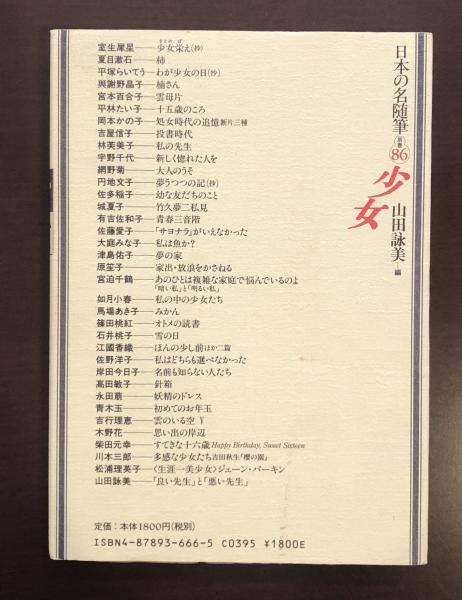 日本の名随筆
別巻
86
少女
山田詠美=編
室生犀星──少女栄え(抄)
夏目漱石──柿
平塚らいてう──わが少女の日(抄)
與謝野晶子──楠さん
宮本百合子──雲母片
平林たい子──十五歳のころ
岡本かの子──処女時代の追憶 断片三種
吉屋信子──投書時代
林芙美子──私の先生
宇野千代──新しく惚れた人を
網野菊──大人のうそ
円地文子──夢うつつの記(抄)
佐多稲子──幼な友だちのこと
城夏子──竹久夢二私見
有吉佐和子──青春三音階
佐藤愛子──「サヨナラ」がいえなかった
大庭みな子──私は魚か?
津島佑子──夢の家
原笙子──家出・放浪をかさねる
宮迫千鶴──あのひとは複雑な家庭で悩んでいるのよ
「暗い私」と「明るい私」
如月小春──私の中の少女たち
馬場あき子──みかん
篠田桃紅──オトメの読書
石井桃子──雪の日
江國香織──ほんの少し前 ほか二篇
佐野洋子──私はどちらも選べなかった
岸田今日子──名前も知らない人たち
高田敏子──針箱
永田萠──妖精のドレス
青木玉──初めてのお年玉
吉行理恵──雲のいる空 V
木野花──思い出の岸辺
柴田元幸──すてきな十六歳 Happy Birthday, Sweet Sixteen
川本三郎──多感な少女たち 吉田秋生『櫻の園』
松浦理英子──〈生涯一美少女〉ジェーン・バーキン
山田詠美──「良い先生」と「悪い先生」
定価:本体1800円(税別)
ISBN4-87893-666-5 C0395 ¥1800E